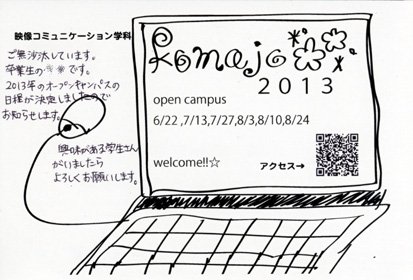 映像コミュニケーション学科
ご無沙汰しています。
卒業生の**です。
2013年のオープンキャンパスの
日程が決定しましたので
お知らせします。
興味がある学生さん
がいましたら
よろしくお願いします。
komajo
2013
open campus
6/22 ,7/13,7/27,8/3,8/10,8/24
welcome!!☆
アクセス→